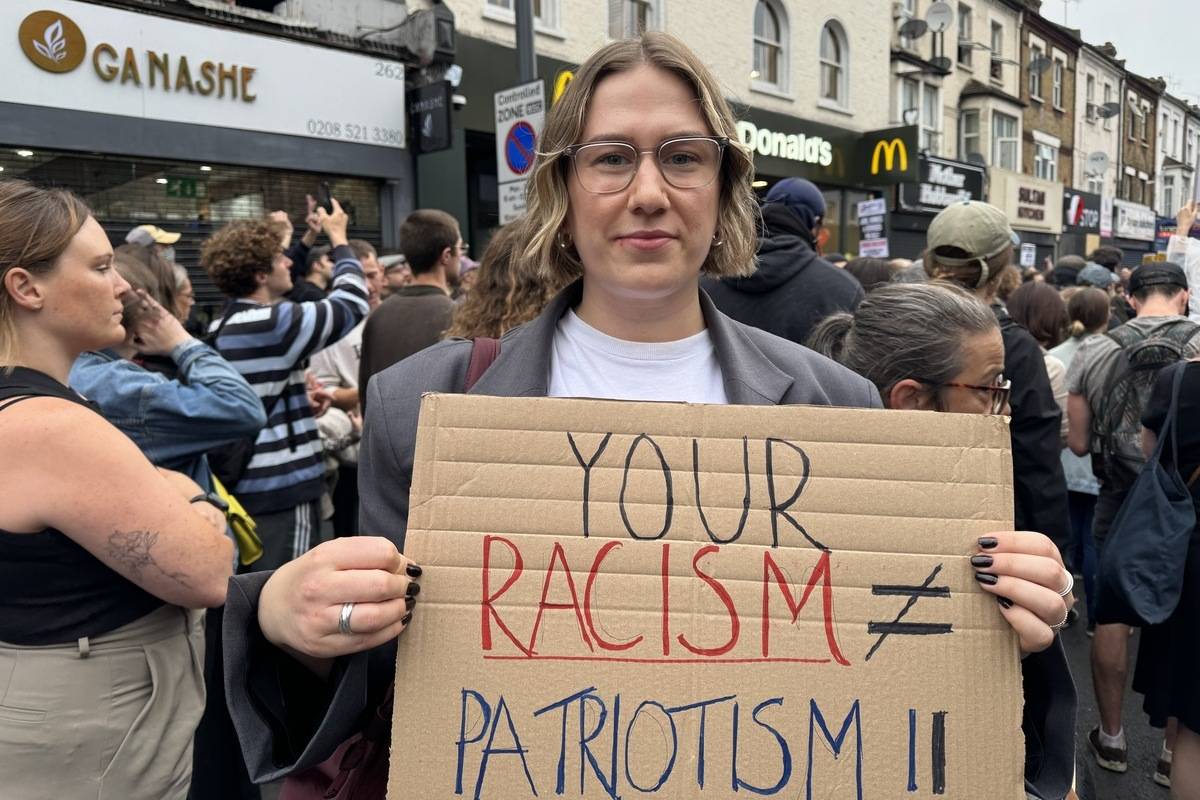 GANASHE
262
0208 521 3380
Controlled
ZONE
McDonald's
SULTAN
KITCHEN
YOUR
RACISM ≠
PATRIOTISM !!